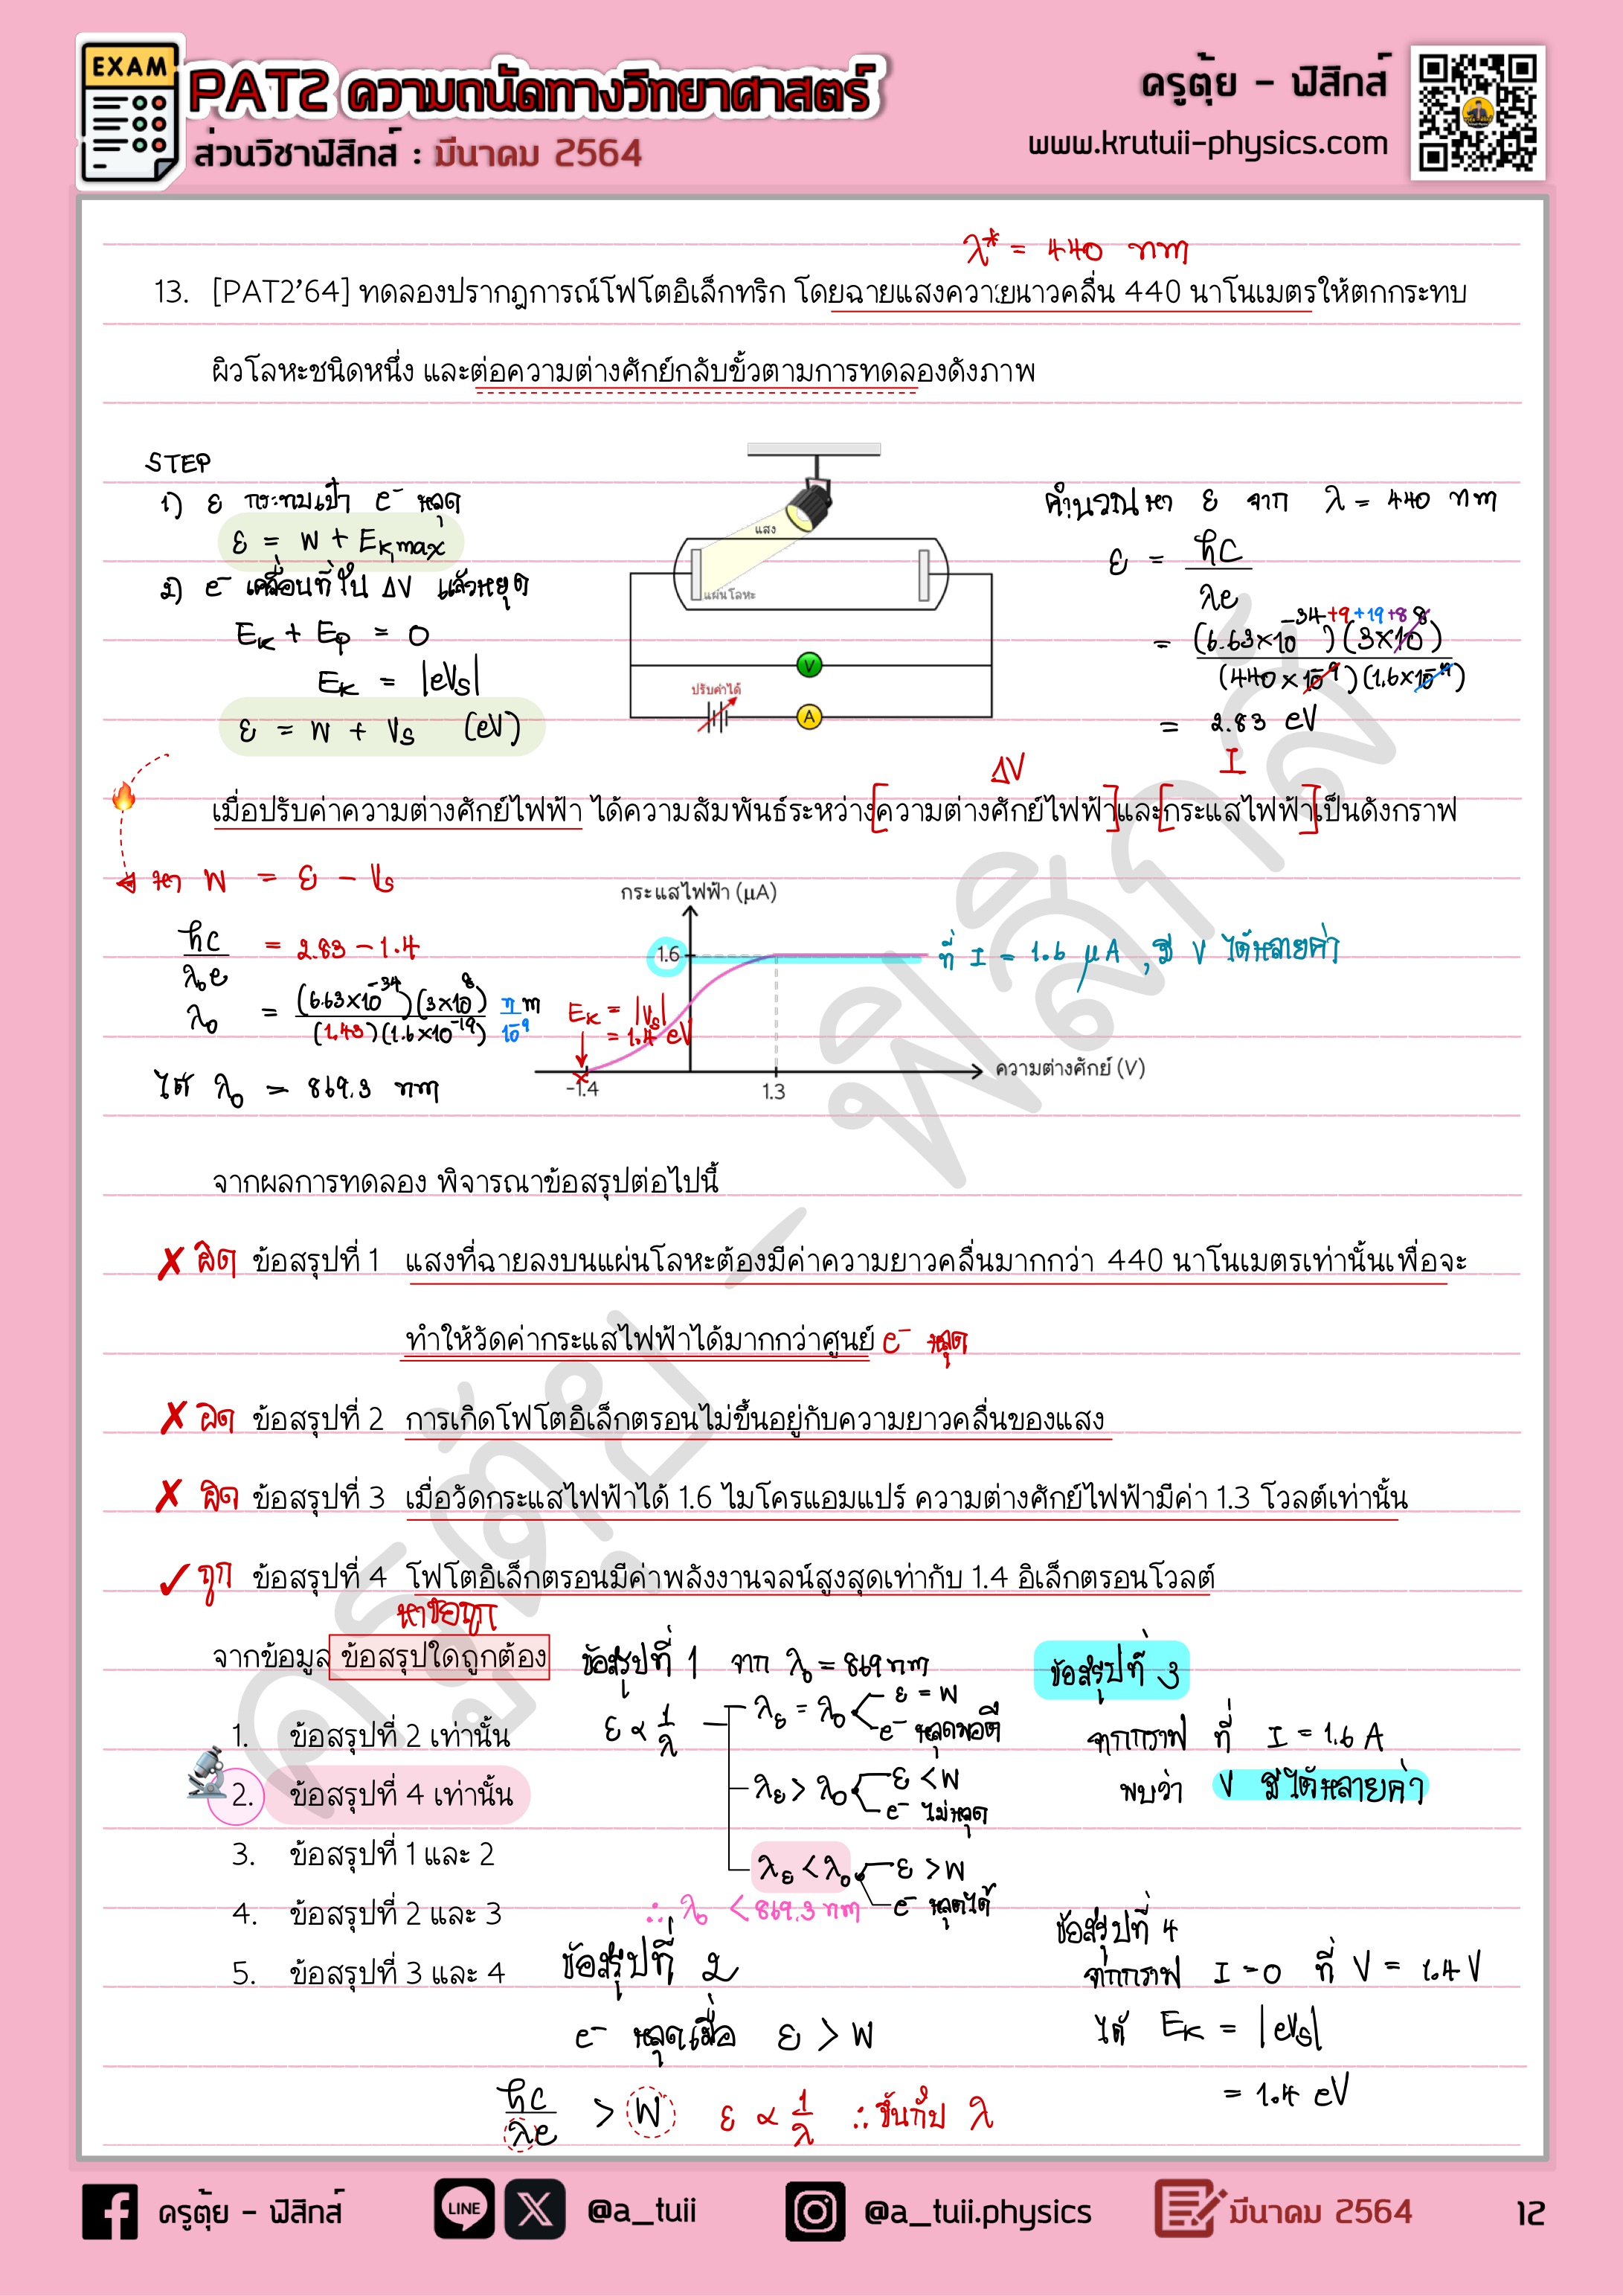 EXAM
PAT2 ความถนัดทางวิทยาศาสตร์
ส่วนวิชาฟิสิกส์ : มีนาคม 2564
ครูตุ้ย - ฟิสิกส์
www.krutuii-physics.com
λ* = 440 nm
13. [PAT2'64] ทดลองปรากฏการณ์โฟโตอิเล็กทริก โดยฉายแสงความยาวคลื่น 440 นาโนเมตรให้ตกกระทบ
ผิวโลหะชนิดหนึ่ง และต่อความต่างศักย์กลับขั้วตามการทดลองดังภาพ
STEP
1) ε กระทบเป้า e⁻ หลุด
ε = W + EK,max
2) e⁻ เคลื่อนที่ใน ΔV แล้วหยุด
EK + EP = 0
EK = |eVs|
ε = W + Vs (eV)
แสง
แผ่นโลหะ
V
ปรับค่าได้
A
คำนวณหา ε จาก λ = 440 nm
ε = hc / λe
= (6.63×10⁻³⁴)(3×10⁸) / (440×10⁻⁹)(1.6×10⁻¹⁹) -34+9+19+8
= 2.83 eV
ΔV I
เมื่อปรับค่าความต่างศักย์ไฟฟ้า ได้ความสัมพันธ์ระหว่าง[ความต่างศักย์ไฟฟ้า]และ[กระแสไฟฟ้า]เป็นดังกราฟ
หา W = ε - Vs
hc / λ₀e = 2.83 - 1.4
λ₀ = (6.63×10⁻³⁴)(3×10⁸) / (1.43)(1.6×10⁻¹⁹) n/10⁻⁹ m
ได้ λ₀ = 869.3 nm
กระแสไฟฟ้า (μA)
1.6
ที่ I = 1.6 μA , มี V ได้หลายค่า
EK = |Vs|
= 1.4 eV
-1.4
1.3
ความต่างศักย์ (V)
จากผลการทดลอง พิจารณาข้อสรุปต่อไปนี้
✗ ผิด ข้อสรุปที่ 1 แสงที่ฉายลงบนแผ่นโลหะต้องมีค่าความยาวคลื่นมากกว่า 440 นาโนเมตรเท่านั้นเพื่อจะ
ทำให้วัดค่ากระแสไฟฟ้าได้มากกว่าศูนย์ e⁻ หลุด
✗ ผิด ข้อสรุปที่ 2 การเกิดโฟโตอิเล็กตรอนไม่ขึ้นอยู่กับความยาวคลื่นของแสง
✗ ผิด ข้อสรุปที่ 3 เมื่อวัดกระแสไฟฟ้าได้ 1.6 ไมโครแอมแปร์ ความต่างศักย์ไฟฟ้ามีค่า 1.3 โวลต์เท่านั้น
✓ ถูก ข้อสรุปที่ 4 โฟโตอิเล็กตรอนมีค่าพลังงานจลน์สูงสุดเท่ากับ 1.4 อิเล็กตรอนโวลต์
หาข้อถูก
จากข้อมูล ข้อสรุปใดถูกต้อง
1. ข้อสรุปที่ 2 เท่านั้น
2. ข้อสรุปที่ 4 เท่านั้น
3. ข้อสรุปที่ 1 และ 2
4. ข้อสรุปที่ 2 และ 3
5. ข้อสรุปที่ 3 และ 4
ข้อสรุปที่ 1 จาก λ₀ = 869 nm
ε ∝ 1/λ
λε = λ₀ ε = W
e⁻ หลุดพอดี
λε > λ₀ ε < W
e⁻ ไม่หลุด
λε < λ₀ ε > W
e⁻ หลุดได้
∴ λ₀ < 869.3 nm
ข้อสรุปที่ 3
จากกราฟ ที่ I = 1.6 A
พบว่า V มีได้หลายค่า
ข้อสรุปที่ 2
e⁻ หลุดเมื่อ ε > W
hc / λe > W ε ∝ 1/λ ∴ ขึ้นกับ λ
ข้อสรุปที่ 4
จากกราฟ I = 0 ที่ V = 1.4 V
ได้ EK = |eVs|
= 1.4 eV
ครูตุ้ย - ฟิสิกส์
ครูตุ้ย - ฟิสิกส์
LINE
X
@a_tuii
@a_tuii.physics
มีนาคม 2564
12